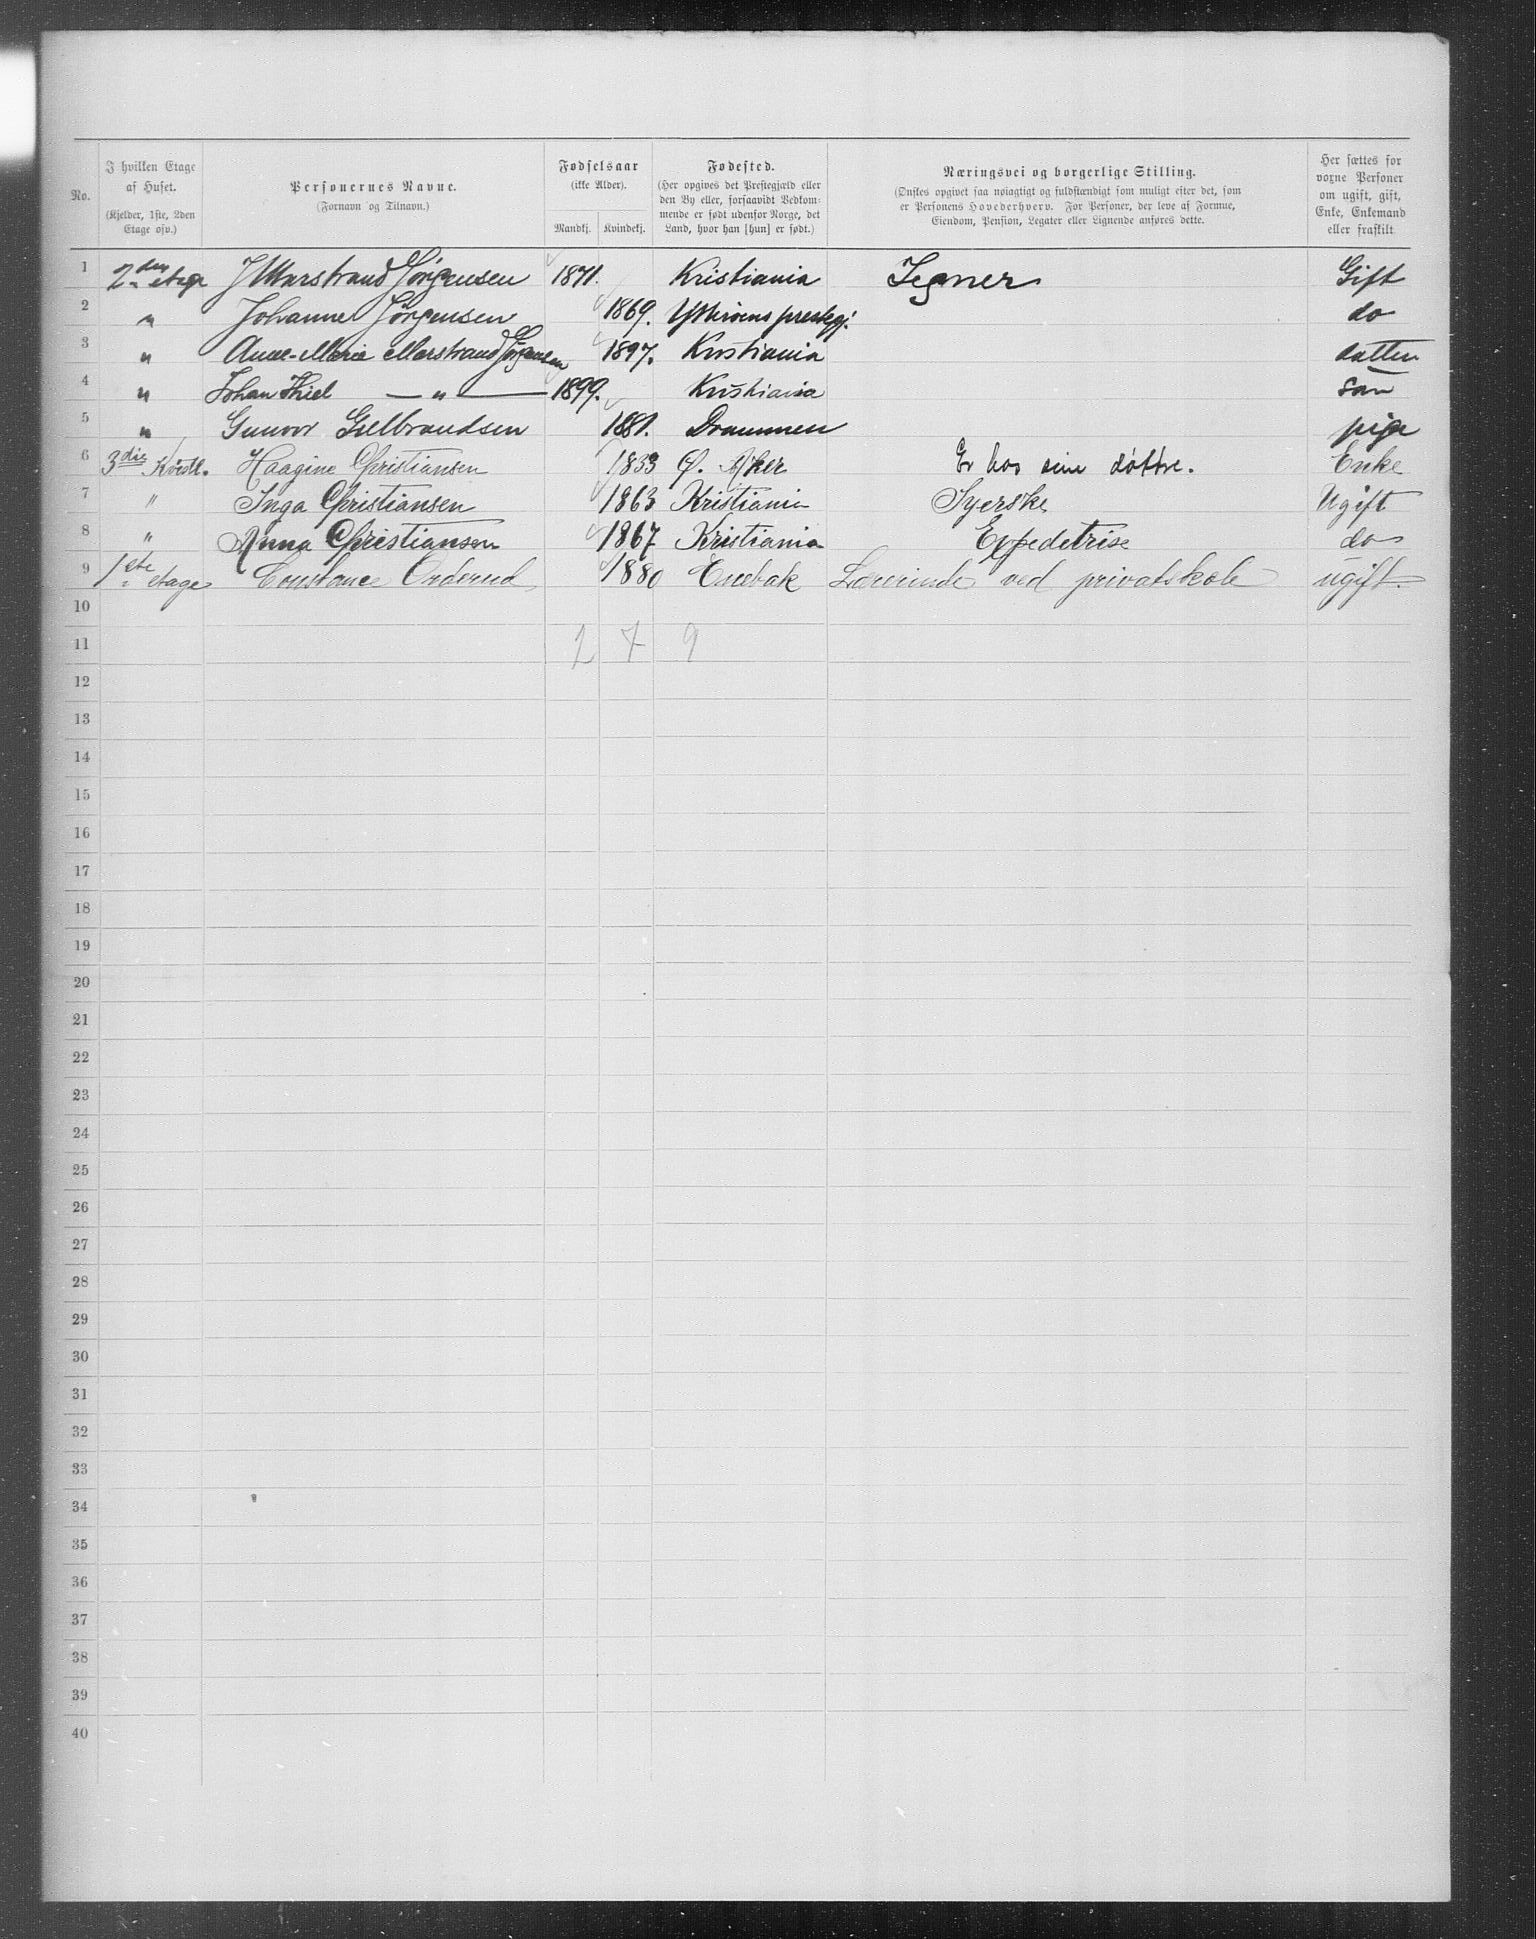 No.
I hvilken Etage af Huset.
(Kjelder, 1ste, 2den Etage osv.)
Personernes Navne.
(Fornavn og Tilnavn.)
Fødselsaar
(ikke Alder).
Mandkj. Kvindekj.
Fødested.
(Her opgives det Prestegjæld eller den By eller, forsaavidt Vedkommende er født udenfor Norge, det Land, hvor han [hun] er født.)
Næringsvei og borgerlige Stilling.
(Ønskes opgivet saa nøiagtigt og fuldstændigt som muligt efter det, som er Personens Hovederhverv. For Personer, der leve af Formue, Eiendom, Pension, Legater eller Lignende anføres dette.
Her sættes for voxne Personer om ugift, gift, Enke, Enkemand eller fraskilt
1 2den etage J Marstrand Jörgensen 1871. Kristiania Tegner Gift
2 " Johanne Jörgensen 1869. prestegj. do
3 " Anne-Marie Marstrand Jörgensen 1897. Kristiania datter
4 " Johan Thiel — " — 1899. Kristiania
5 " Gunvor Gulbrandsen 1881. Drammen pige
6 3die Kvistl. Haagine Christiansen 1833 Ø. Aker Er hos sine døttre. Enke
7 " Inga Christiansen 1863 Kristiania Syerske Ugift
8 " Anna Christiansen 1867 Kristiania Expedetrise do
9 1ste etage Constance Onderud 1880 Enebak Lærerinde ved privatskole ugift.
10
11 2 7 9
12
13
14
15
16
17
18
19
20
21
22
23
24
25
26
27
28
29
30
31
32
33
34
35
36
37
38
39
40